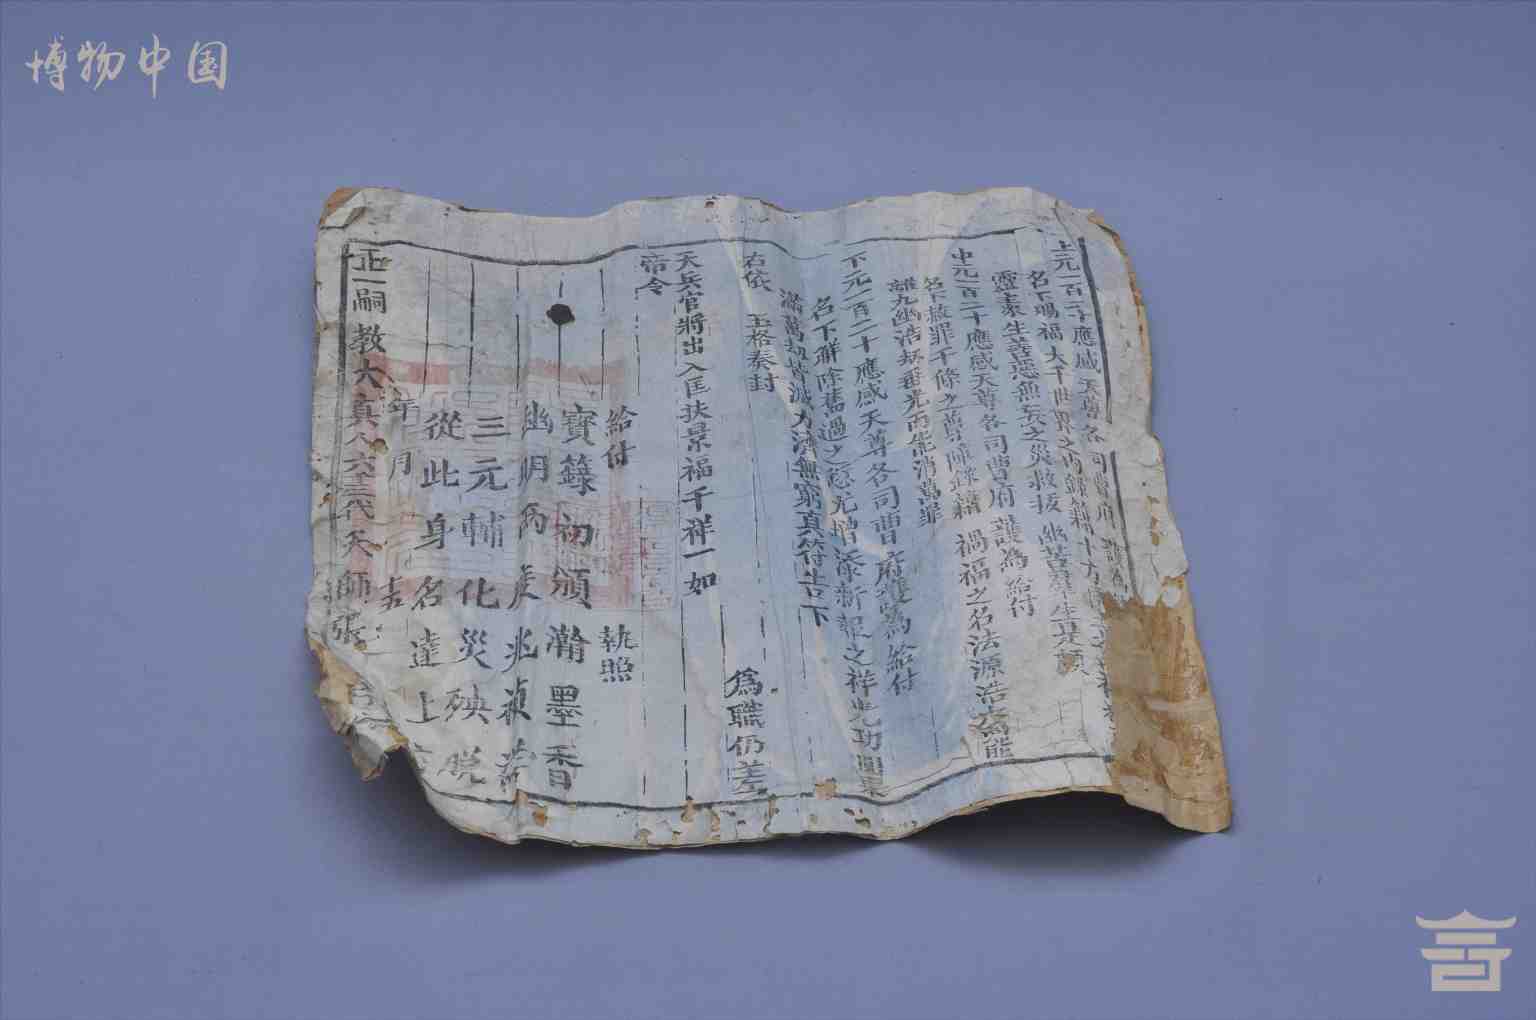 博物中国
上元一百二十應感天尊各司曹府
名下賜福大千世界之內錄籍十方
靈裘生善惡無妄之災救拔幽苦羣生是賴
中元一百二十應感天尊各司曹府護為給付
名下赦罪千條之尊師錄籍禍福之名法源浩蕩為能
離九幽浩劫番光而能消萬罪
下元一百二十應感天尊各司曹府護為給付
名下解除舊過之愆尤增添新報之祥光功圓果
滿萬劫皆滅力濟無窮真符告下
右依
玉格奏封
為職仍差
天兵官將出入匡扶景福千祥一如
帝令
給付
執照
寶籙初頒瀚墨香
幽明為
兆禎
三元輔化災殃脫
從此身名達上
年月
吉
正一嗣教大真人六十三代天師張